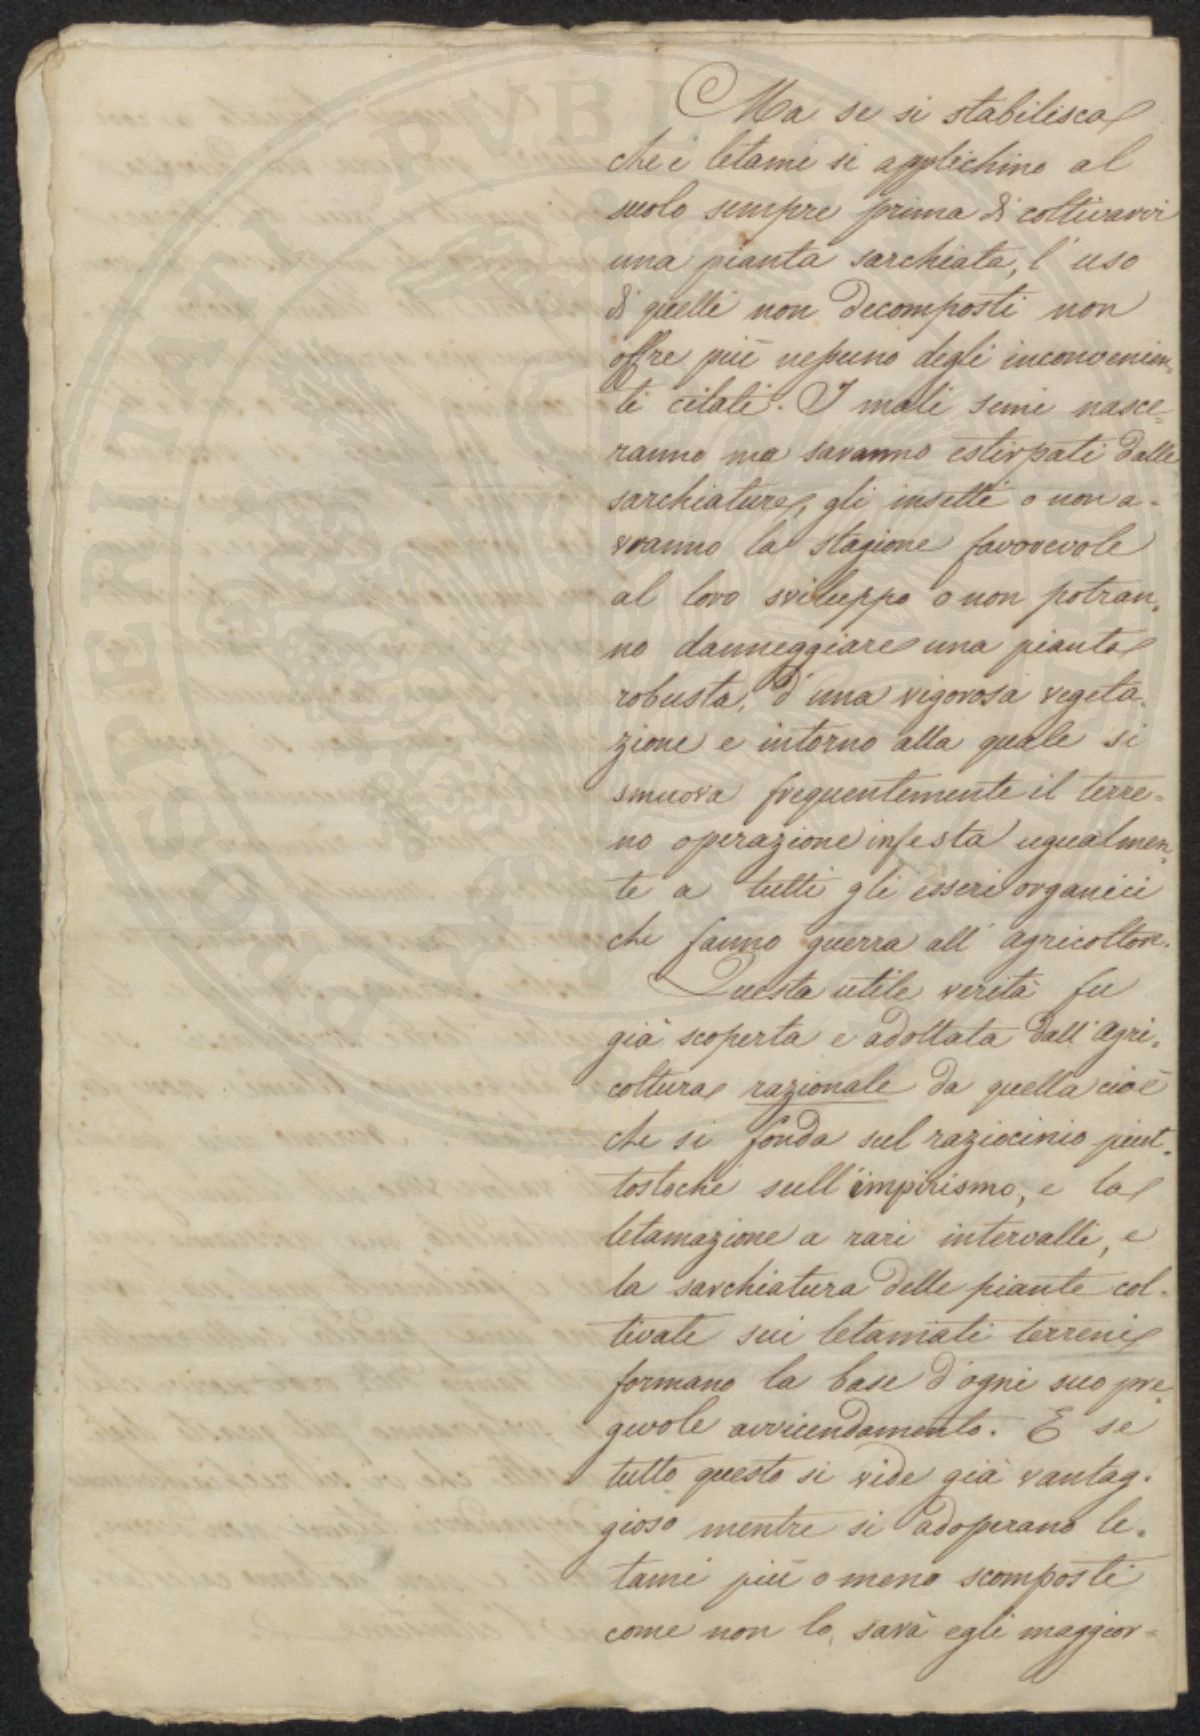 Ma se si stabilisca
che i letami si applichino al
suolo sempre prima di coltivarvi
una pianta sarchiata, l'uso
di quelli non decomposti non
offre più nessuno degli inconvenien„
ti citati. I mali semi nasce=
ranno ma saranno estirpati dalle
sarchiature, gli insetti o non a-
vranno la stagione favorevole
al loro sviluppo o non potran„
no danneggiare una pianta
robusta, d'una vigorosa vegeta-
zione e intorno alla quale si
smuova frequentemente il terre-
no operazione infesta ugualmen„
te a tutti gli esseri organici
che fanno guerra all'agricoltore.
Questa utile verità fu
già scoperta e adottata dall'agri-
coltura razionale da quella cioè
che si fonda sul raziocinio piut-
tostochè sull'impirismo, e la
letamazione a rari intervalli, e
la sarchiatura delle piante col-
tivate sui letamati terreni
formano la base d'ogni suo pre
gevole avvicendamento. E se
tutto questo si vide già vantag-
gioso mentre si adoperano le-
tami più o meno scomposti
come non lo sarà egli maggior-
PROSPERITATI PVBLICAE